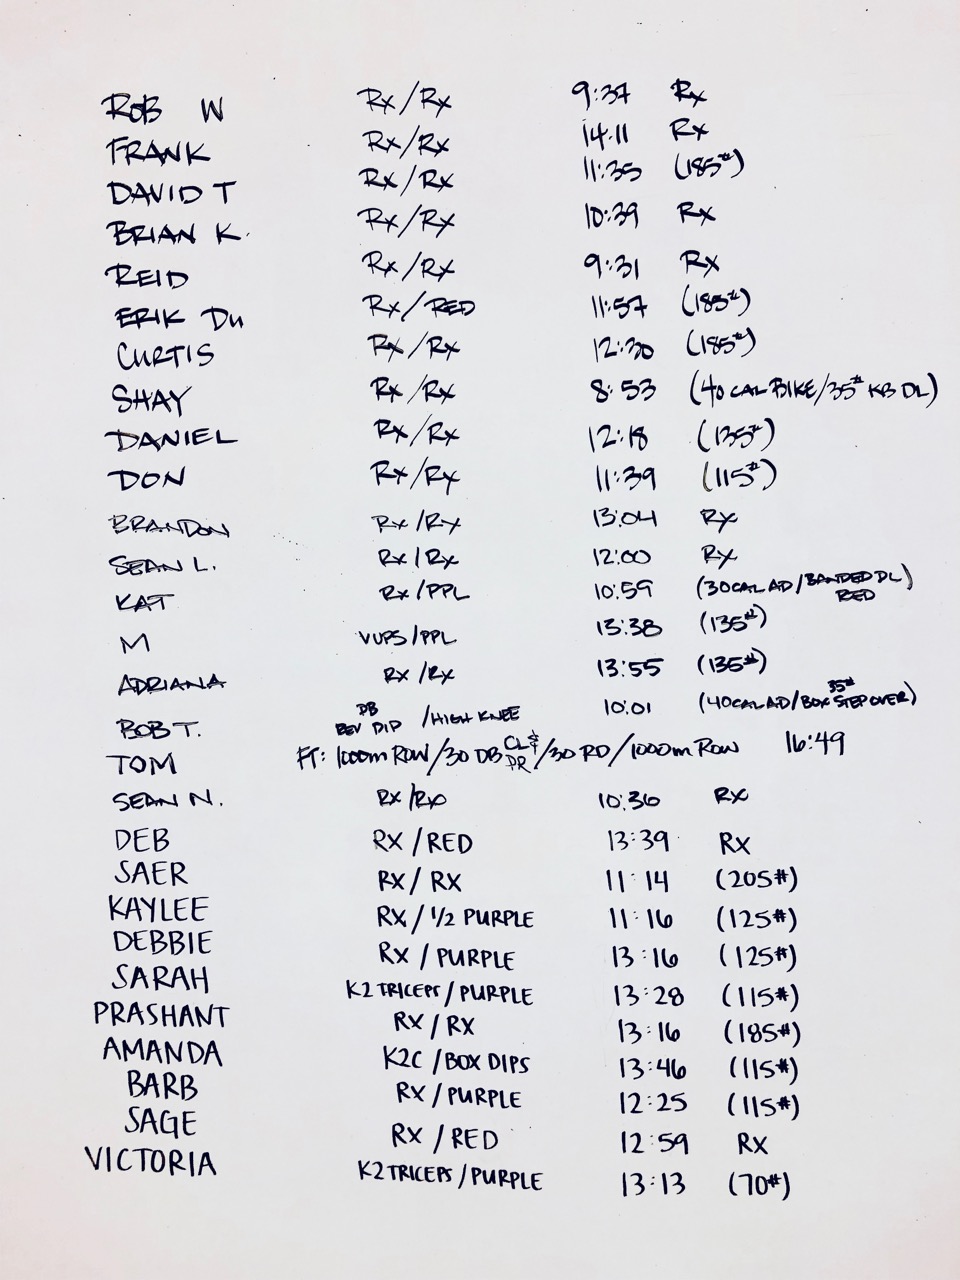 ROB W Rx/Rx 9:37 Rx
FRANK Rx/Rx 14:11 Rx
DAVID T Rx/Rx 11:35 (185#)
BRIAN K. Rx/Rx 10:39 Rx
REID Rx/Rx 9:31 Rx
ERIK DU Rx/RED 11:57 (185#)
CURTIS Rx/Rx 12:30 (185#)
SHAY Rx/Rx 8:53 (40 CAL BIKE/35# KB DL)
DANIEL Rx/Rx 12:18 (135#)
DON Rx/Rx 11:39 (115#)
BRANDON Rx/Rx 13:04 Rx
SEAN L. Rx/Rx 12:00 Rx
KAT Rx/PPL 10:59 (30CAL AD/BANDED DL) RED
M VUPS/PPL 13:38 (135#)
ADRIANA Rx/Rx 13:55 (135#)
BOB T. DB BEV DIP /HIGH KNEE 10:01 (40CAL AD/BOX STEP OVER) 35#
TOM FT: 1000m ROW/30 DB CL & PR/30 RD/1000m ROW 16:49
SEAN N. Rx/Rx 10:36 Rx
DEB RX/RED 13:39 RX
SAER RX/RX 11:14 (205#)
KAYLEE RX/1/2 PURPLE 11:16 (125#)
DEBBIE RX/PURPLE 13:16 (125#)
SARAH K2 TRICEPS/PURPLE 13:28 (115#)
PRASHANT RX/RX 13:16 (185#)
AMANDA K2C/BOX DIPS 13:46 (115#)
BARB RX/PURPLE 12:25 (115#)
SAGE RX/RED 12:59 RX
VICTORIA K2 TRICEPS/PURPLE 13:13 (70#)